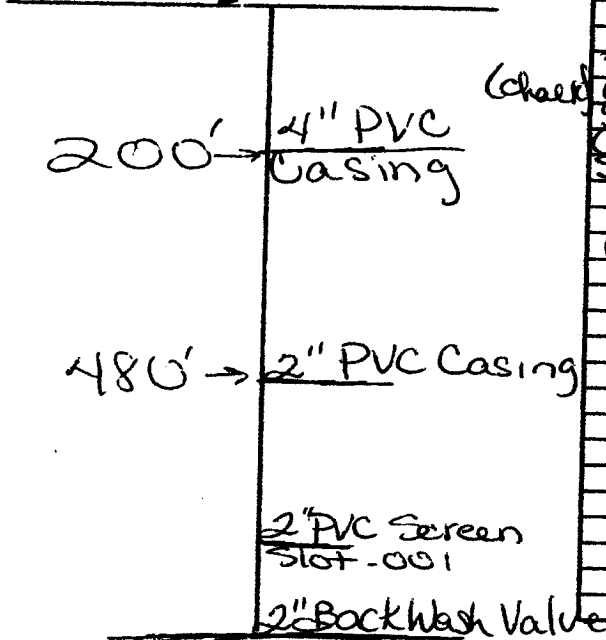 4" PVC
200' → Casing
480' → 2" PVC Casing
2" PVC Screen
Slot - 001
2" BackWash Valve